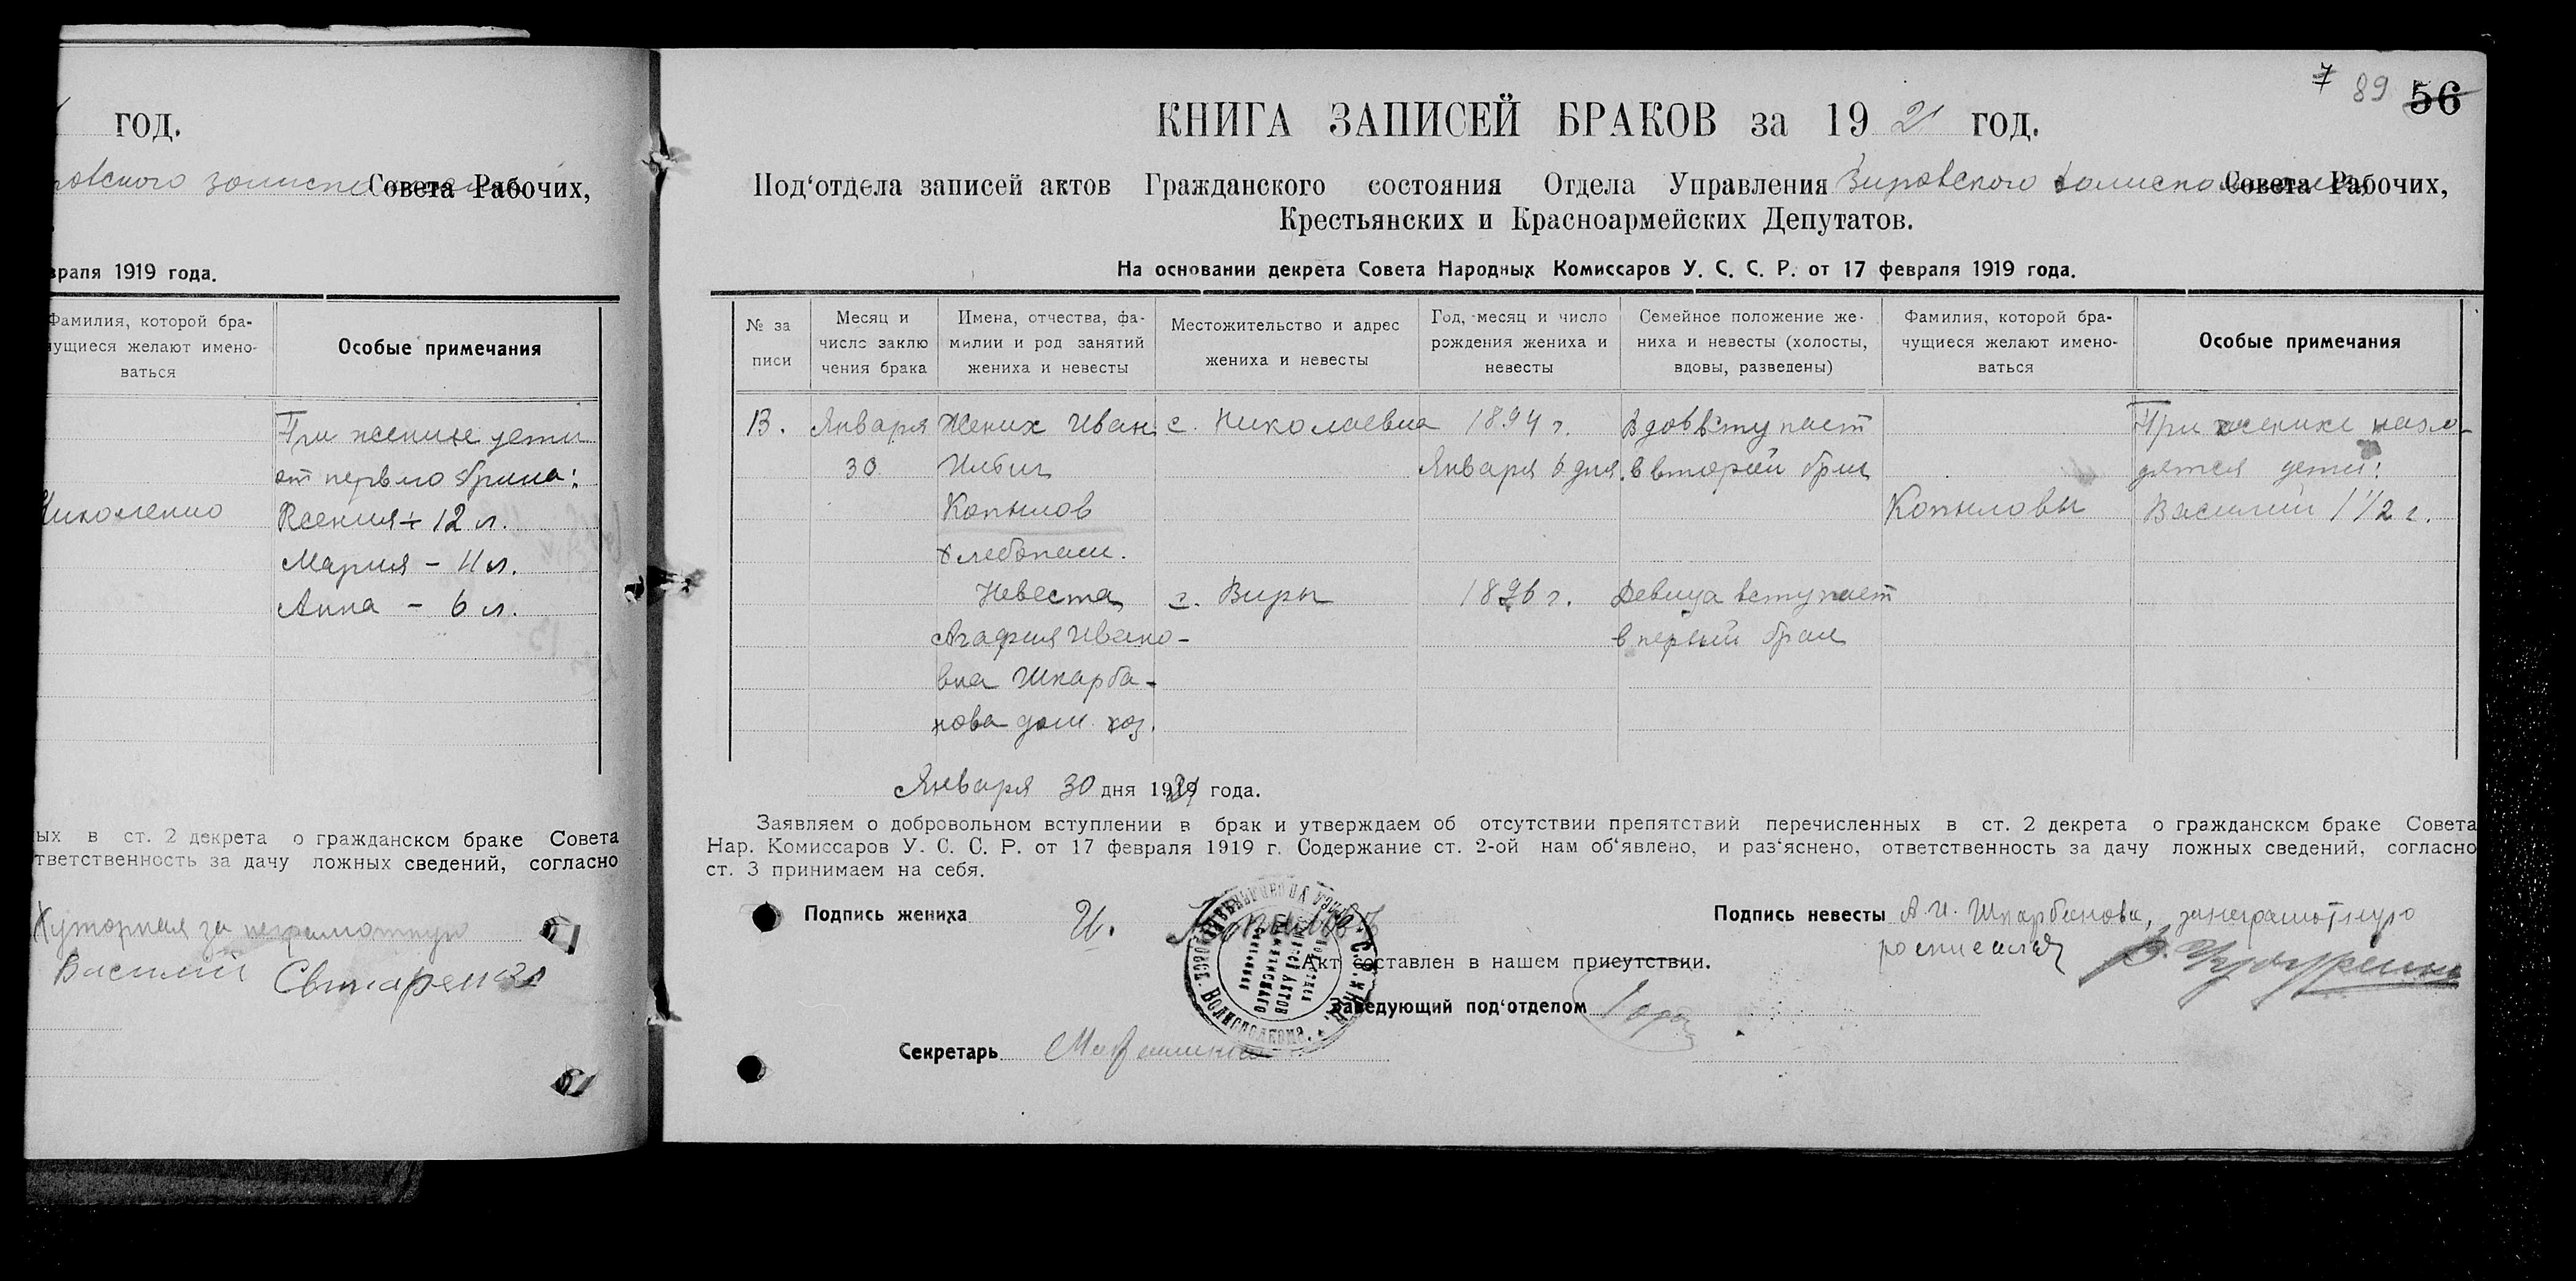 год.
Совета Рабочих,
враля 1919 года.
Фамилия, которой бра-
чущиеся желают имено-
ваться
Особые примечания
При женихе дети
от первого брака:
Ксения - 12 л.
Мария - 11 л.
Анна - 6 л.
ных в ст. 2 декрета о гражданском браке Совета
тветственность за дачу ложных сведений, согласно
за неграмотную
Василий
7 89 56
КНИГА ЗАПИСЕЙ БРАКОВ за 1921 год.
Под‘отдела записей актов Гражданского состояния Отдела Управления Вировского волисполкома Совета Рабочих,
Крестьянских и Красноармейских Депутатов.
На основании декрета Совета Народных Комиссаров У. С. С. Р. от 17 февраля 1919 года.
№ за
писи
Месяц и
число заклю
чения брака
Имена, отчества, фа-
милии и род занятий
жениха и невесты
Местожительство и адрес
жениха и невесты
Год, месяц и число
рождения жениха и
невесты
Семейное положение же-
ниха и невесты (холосты,
вдовы, разведены)
Фамилия, которой бра-
чущиеся желают имено-
ваться
Особые примечания
13. Января Жених Иван с. Николаевка 1894 г. Вдов вступает При женихе нахо-
30 Ильич Января 6 дня. в второй брак дятся дети:
Копылов Копыловы Василий 1 1/2 г.
хлебопаш.
Невеста с. Виры 1896 г. Девица вступает
Агафия Ивано- в первый брак
вна Шкарба-
нова дом. хоз.
Января 30 дня 1921 года.
Заявляем о добровольном вступлении в брак и утверждаем об отсутствии препятствий перечисленных в ст. 2 декрета о гражданском браке Совета
Нар. Комиссаров У. С. С. Р. от 17 февраля 1919 г. Содержание ст. 2-ой нам об‘явлено, и раз‘яснено, ответственность за дачу ложных сведений, согласно
ст. 3 принимаем на себя.
Подпись жениха И. Копылов
Подпись невесты А. И. Шкарбанова, за неграмотную
росписался
Акт составлен в нашем присутствии.
Заведующий под‘отделом
Секретарь